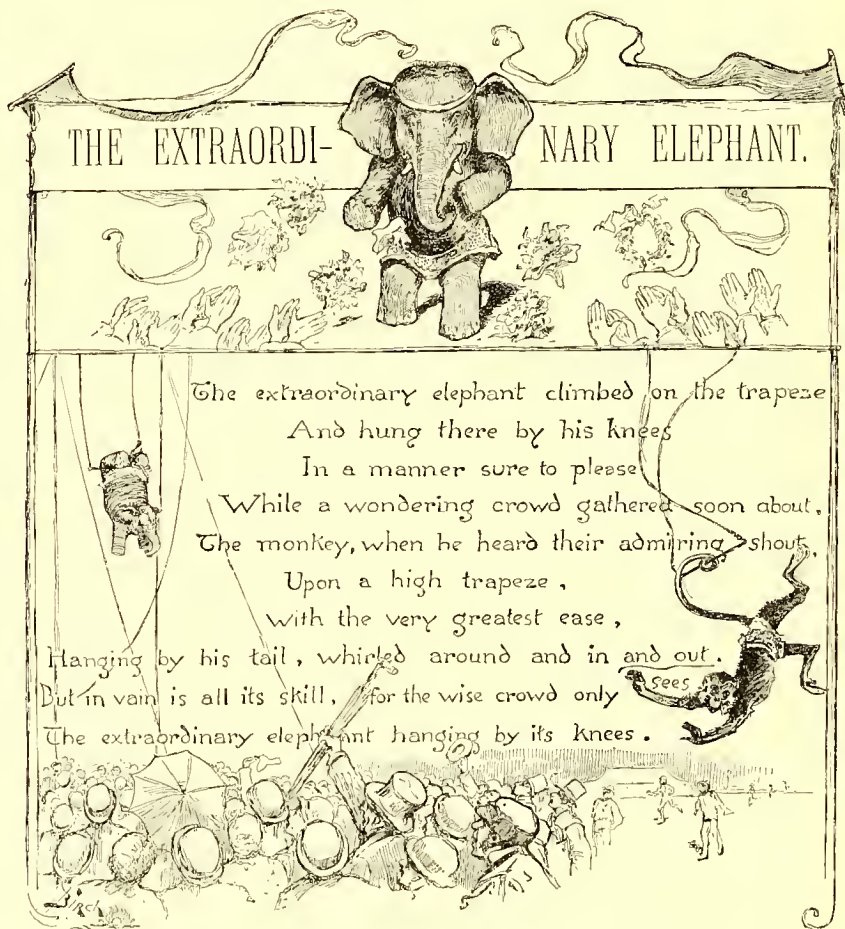 THE EXTRAORDI- NARY ELEPHANT.
The extraordinary elephant climbed on the trapeze
And hung there by his knees
In a manner sure to please
While a wondering crowd gathered soon about,
The monkey, when he heard their admiring shout,
Upon a high trapeze,
with the very greatest ease,
Hanging by his tail, whirled around and in and out.
But in vain is all its skill, for the wise crowd only sees
The extraordinary elephant hanging by its knees.
Birch